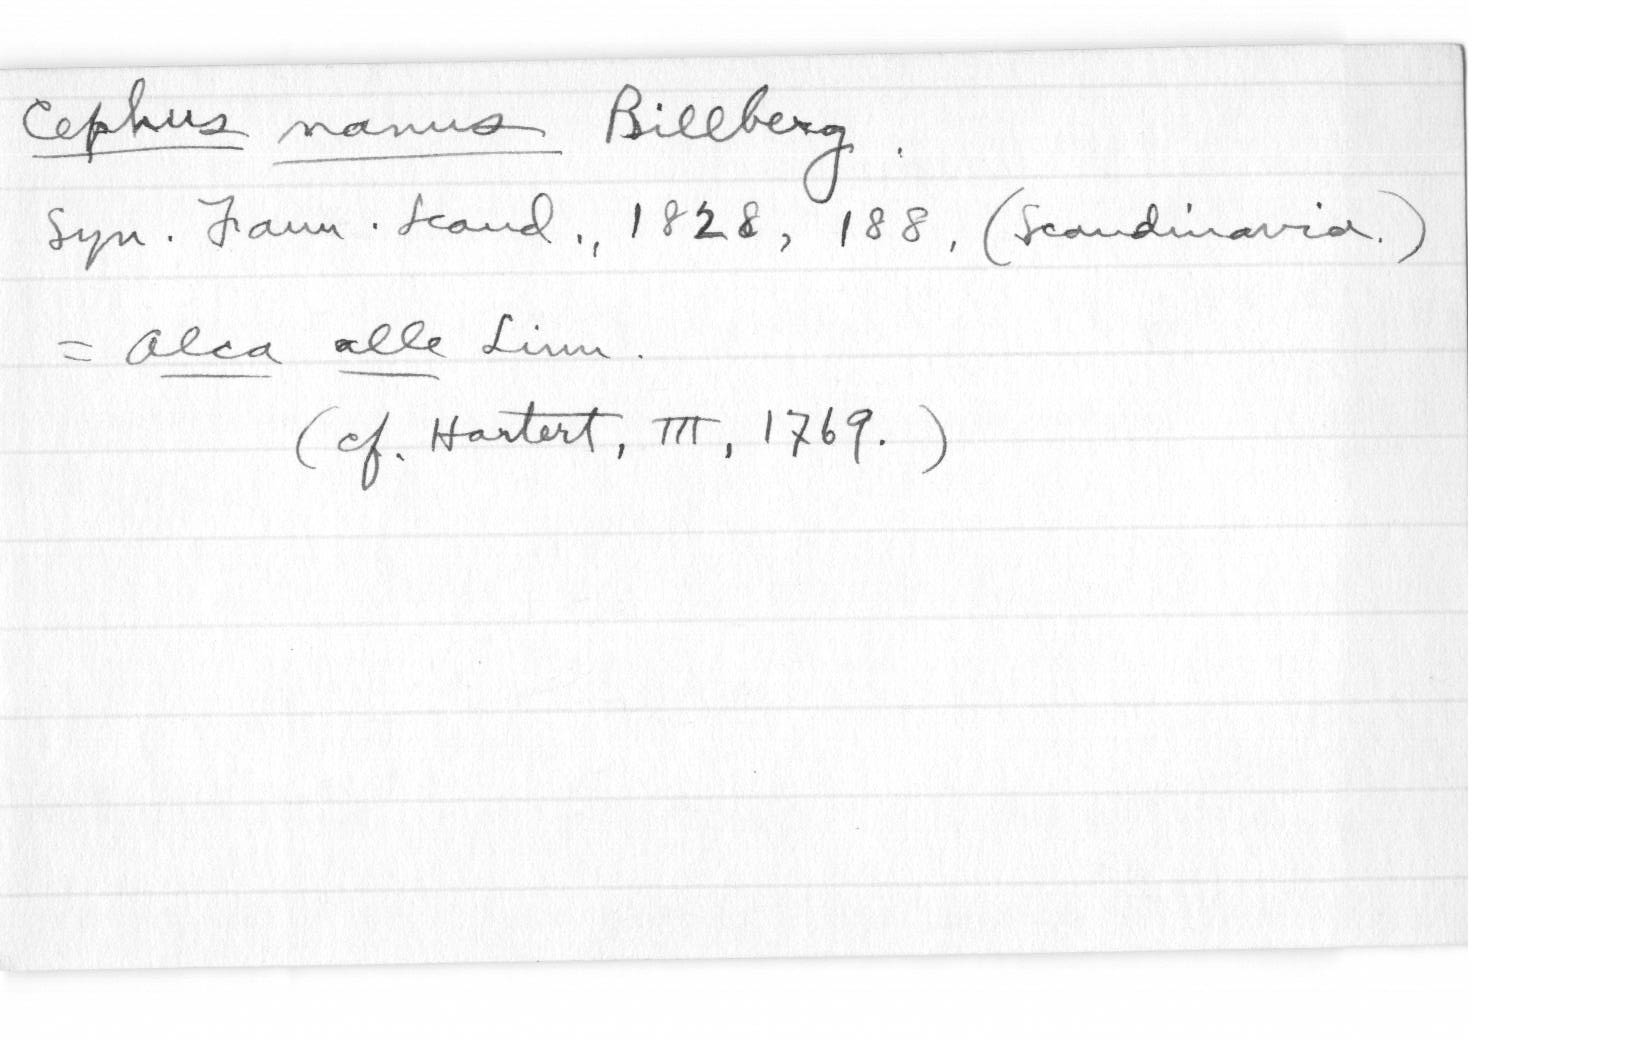 Cephus nanus Billberg.
Syn. Faun. Scand., 1828, 188, (Scandinavia.)
= Alca alle Linn.
(cf. Hartert, III, 1769.)